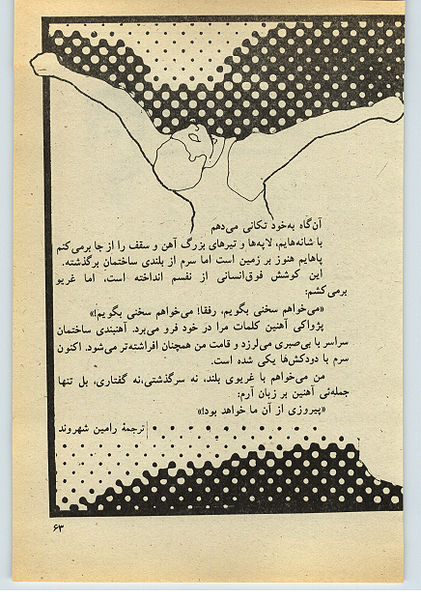 آن‌گاه به‌خود تکانی می‌دهم
با شانه‌هایم، لاپه‌ها و تیرهای بزرگ آهن و سقف را از جا برمی‌کنم
پاهایم هنوز بر زمین است اما سرم از بلندی ساختمان برگذشته.
این کوشش فوق‌انسانی از نفسم انداخته است، اما غریو
برمی‌کشم:
«می‌خواهم سخنی بگویم، رفقا! می‌خواهم سخنی بگویم!»
پژواکی آهنین کلمات مرا در خود فرو می‌برد. آهنبندی ساختمان
سراسر با بی‌صبری می‌لرزد و قامت من همچنان افراشته‌تر می‌شود. اکنون
سرم با دودکش‌ها یکی شده است.
من می‌خواهم با غریوی بلند، نه سرگذشتی،نه گفتاری، بل تنها
جمله‌ئی آهنین بر زبان آرم:
«پیروزی از آن ما خواهد بود!»
ترجمهٔ رامین شهروند
۶۳